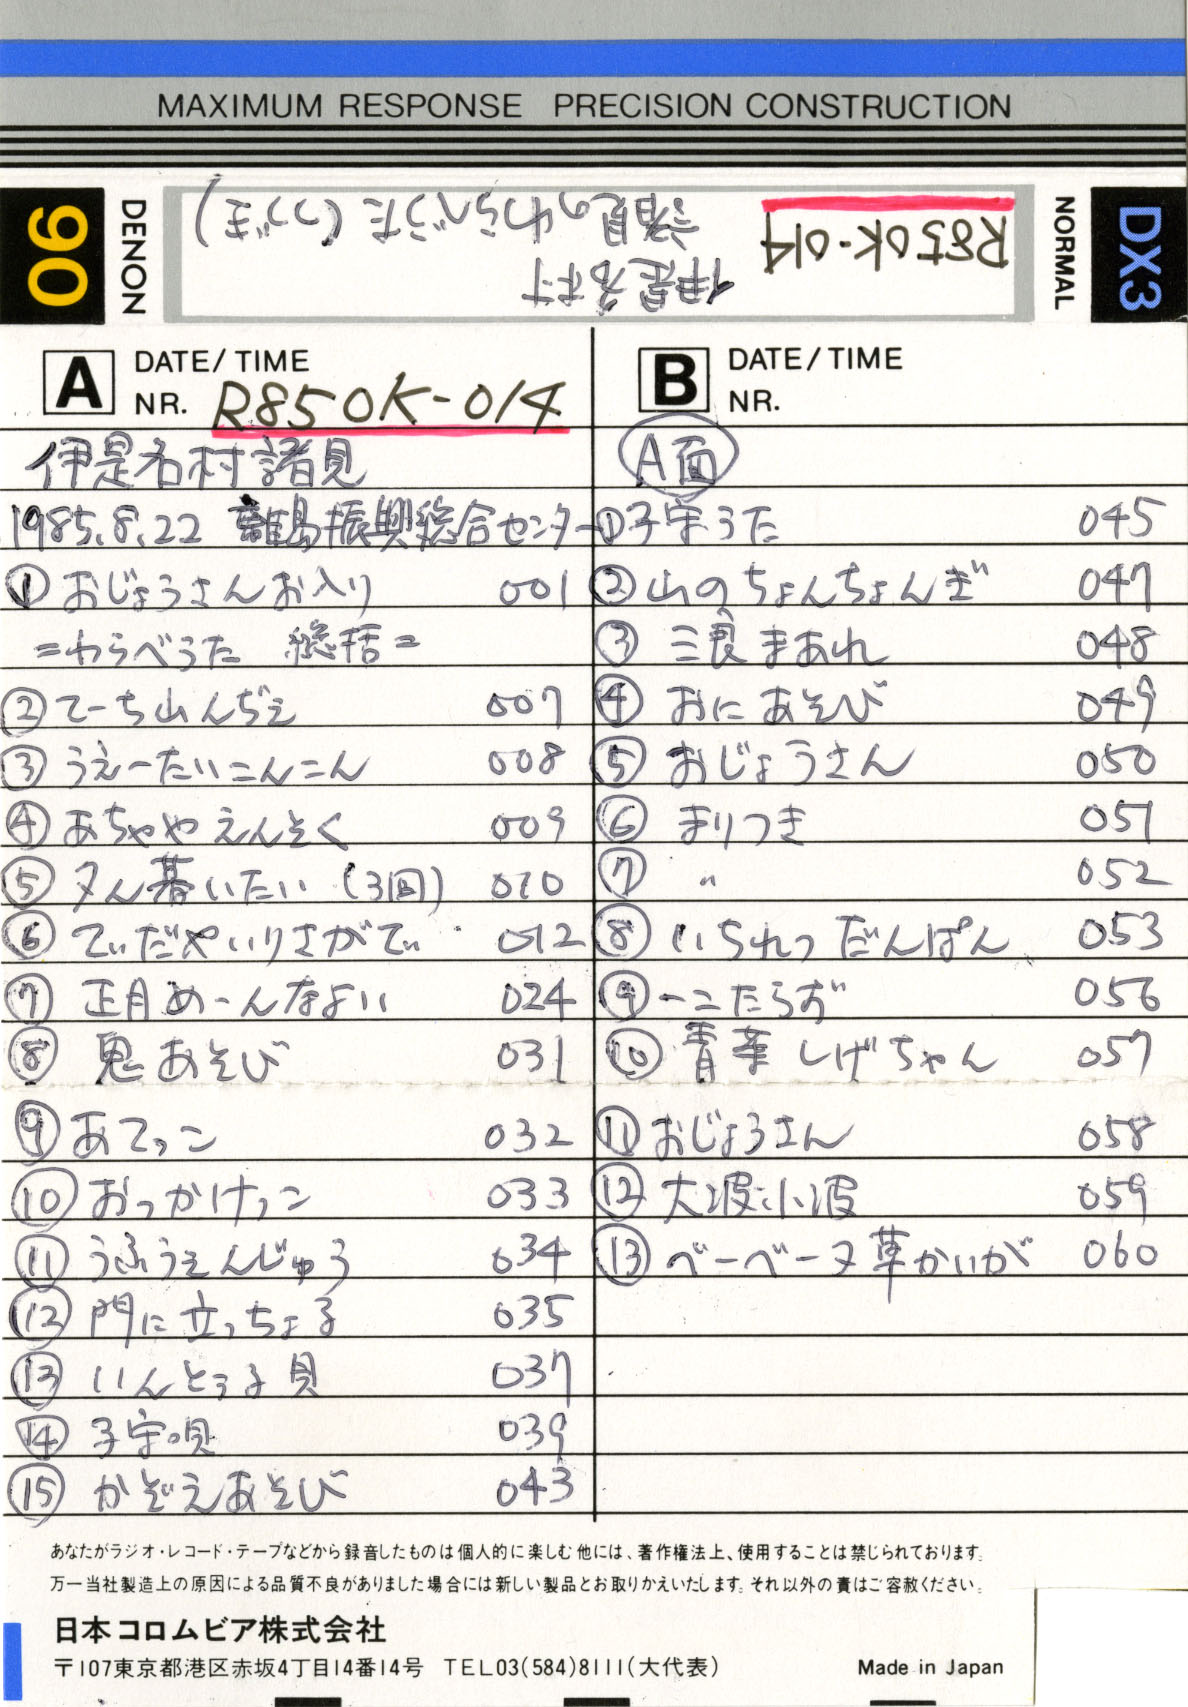 MAXIMUM RESPONSE PRECISION CONSTRUCTION
90
DENON
伊是名村
諸見のわらべうた(つづき)
R850K-014
NORMAL
DX3
A DATE/TIME
NR. R850K-014
伊是名村諸見
1985.8.22 離島振興総合センター
① おじょうさんお入り 001
=わらべうた 総括=
② てーち山んぢぇ 007
③ うえーたいこんこん 008
④ あちゃや えんそく 009
⑤ 夕ん暮いたい (3回) 010
⑥ てぃだや いりさがてぃ 012
⑦ 正月めーんなよい 024
⑧ 鬼あそび 031
⑨ あてっこ 032
⑩ おっかけっこ 033
⑪ うふうえんじゅう 034
⑫ 門に立っちょる 035
⑬ いんとぅる貝 037
⑭ 子守唄 039
⑮ かぞえあそび 043
B DATE/TIME
NR.
A面
① 子守うた 045
② 山のちょんちょんぎ 047
③ 三良まあれ 048
④ おにあそび 049
⑤ おじょうさん 050
⑥ まりつき 051
⑦ 〃 052
⑧ いちれつ だんぱん 053
⑨ 一こたらお 056
⑩ 青葉しげちゃん 057
⑪ おじょうさん 058
⑫ 大波小波 059
⑬ べーべーヌ草かいが 060
あなたがラジオ・レコード・テープなどから録音したものは個人的に楽しむ他には、著作権法上、使用することは禁じられております。
万一当社製造上の原因による品質不良がありました場合には新しい製品とお取りかえいたします。それ以外の責はご容赦ください。
日本コロムビア株式会社
〒107東京都港区赤坂4丁目14番14号 TEL03(584)8111(大代表) Made in Japan